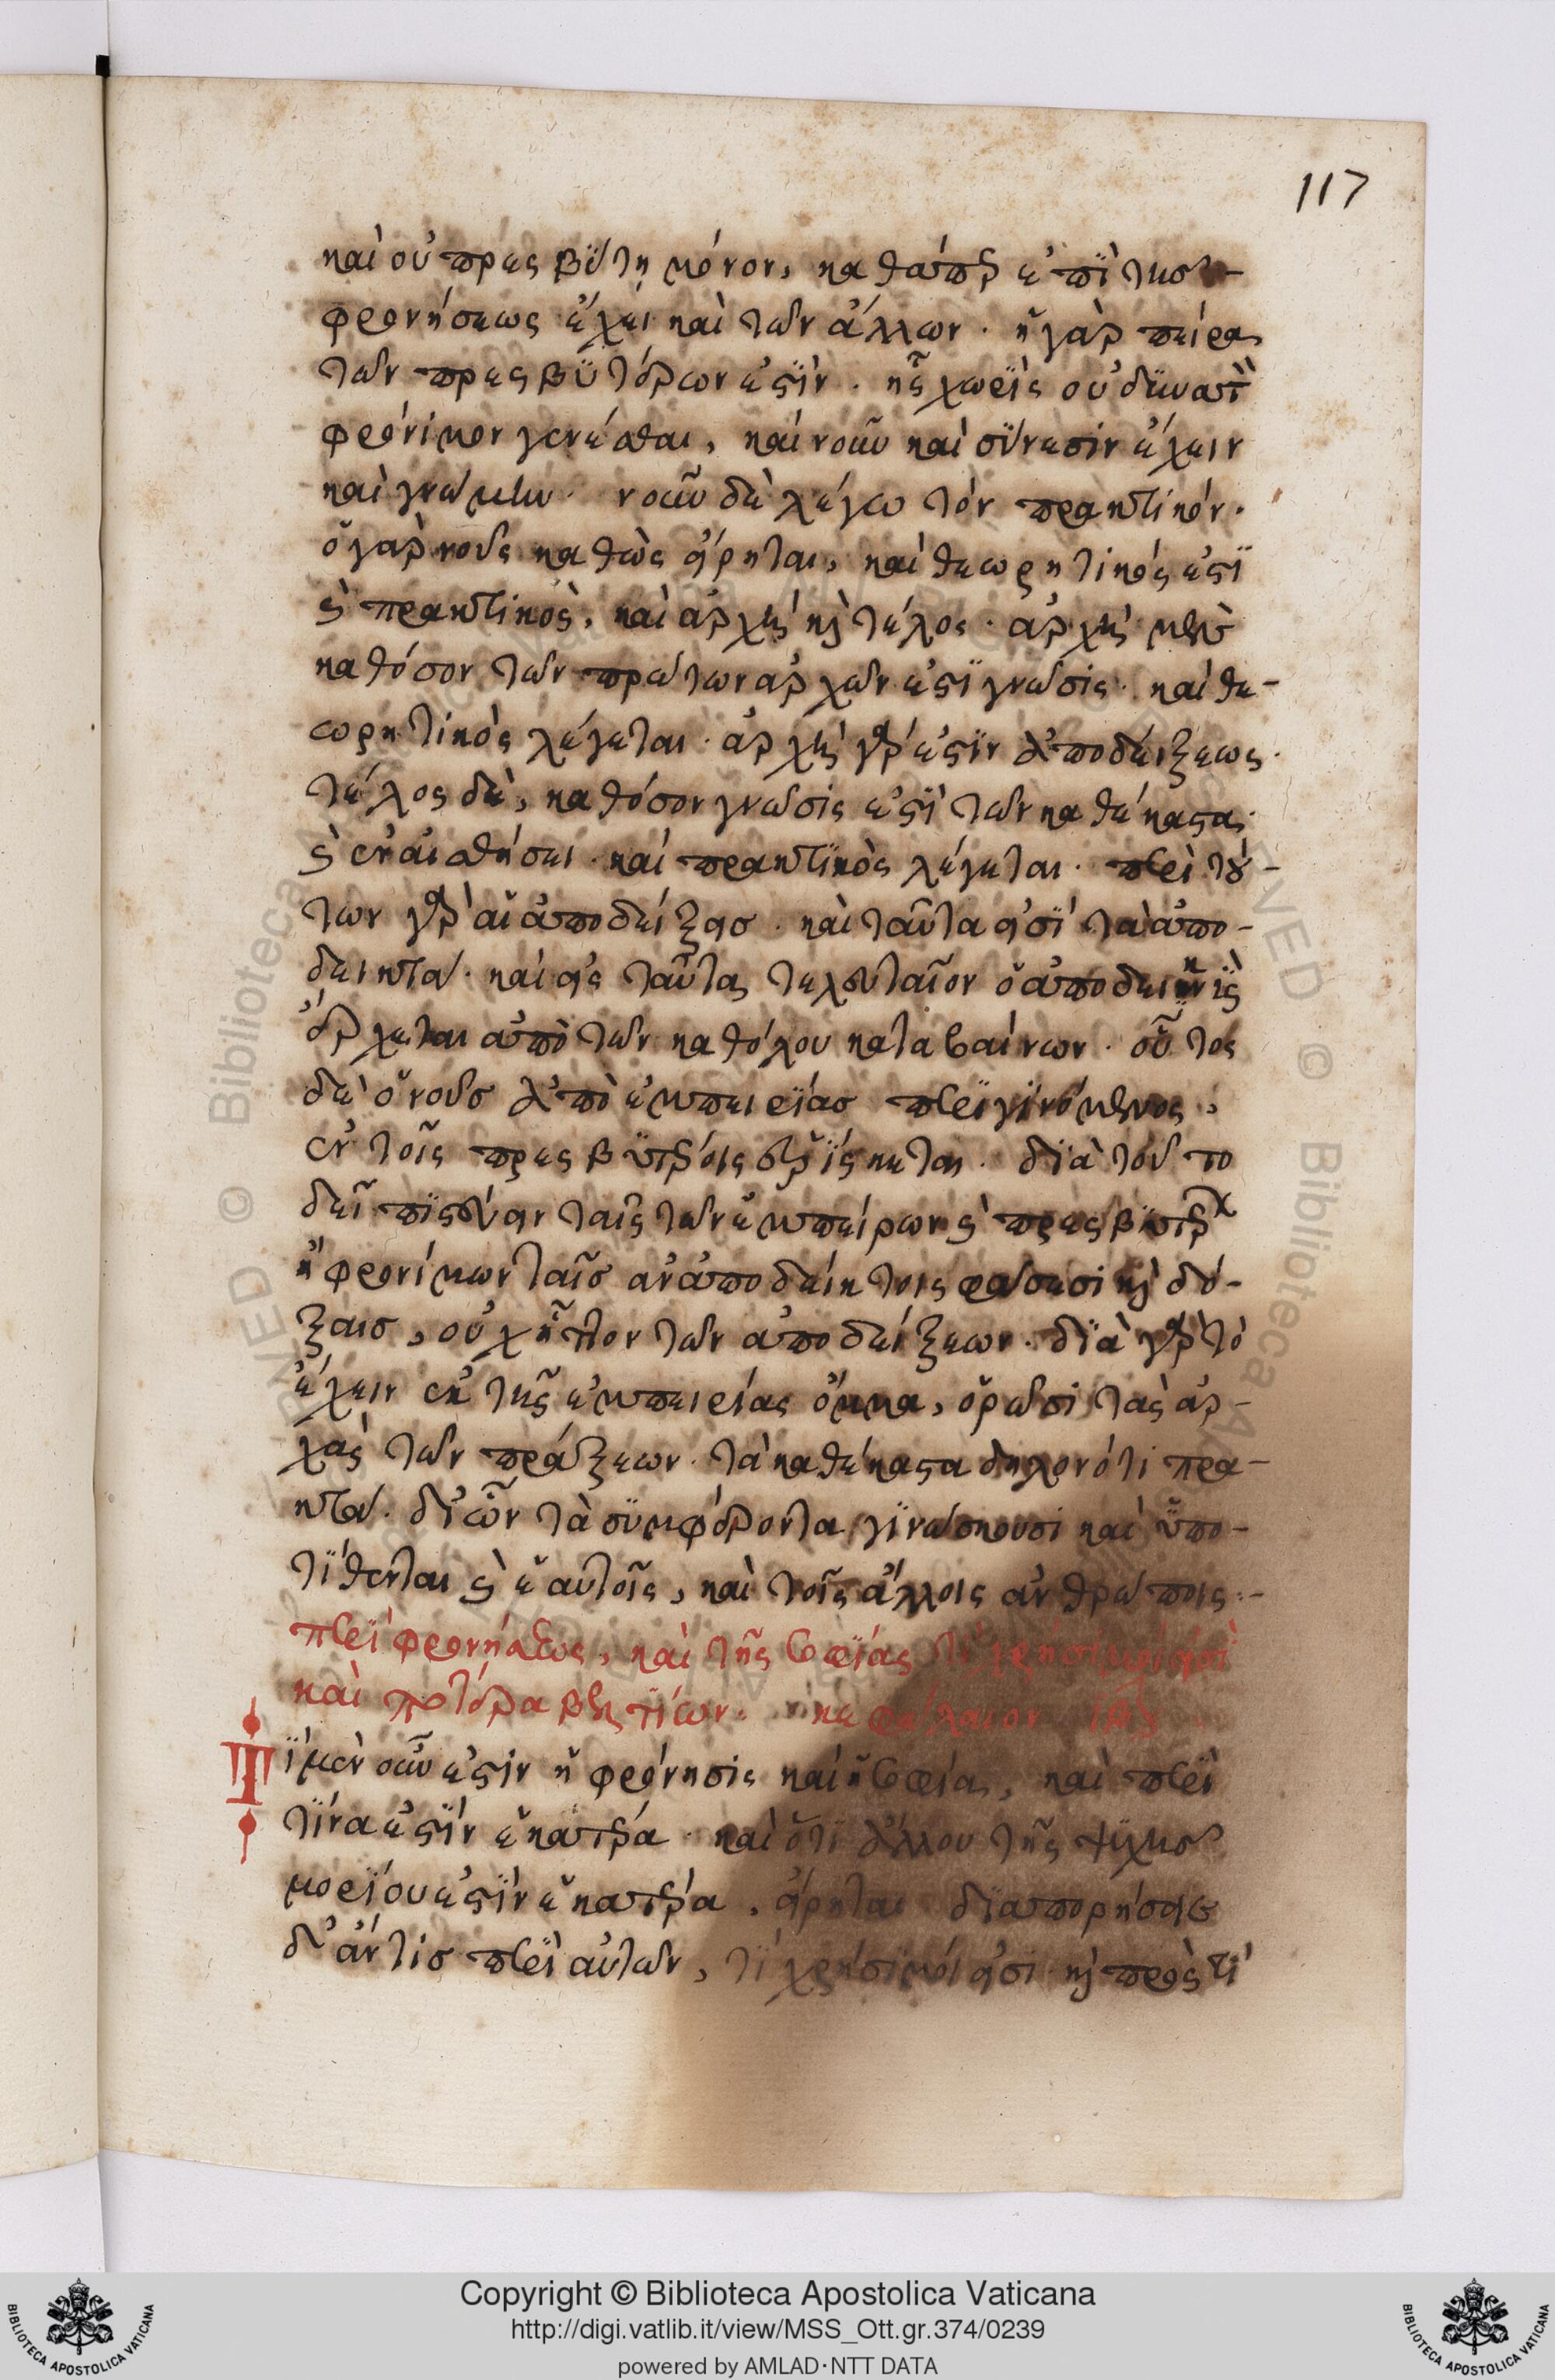 117
καὶ οὐ πρεσβύτῃ μόνον, καθάπερ ἐπὶ τῆς
φρονήσεως ἔχει καὶ τῶν ἄλλων. ἡ γὰρ πεῖρα
τῶν πρεσβυτέρων ἐστὶν. ἧς χωρὶς οὐ δύναται
φρόνιμον γενέσθαι, καὶ νοῦν καὶ σύνεσιν ἔχειν
καὶ γνώμην. νοῦν δὲ λέγω τὸν πρακτικόν.
ὁ γὰρ νοῦς καθὼς εἴρηται, καὶ θεωρητικός ἐστι
καὶ πρακτικὸς, καὶ ἀρχὴ καὶ τέλος. ἀρχὴ μὲν
καθόσον τῶν πρώτων ἀρχῶν ἐστι γνῶσις. καὶ θε-
ωρητικὸς λέγεται. ἀρχὴ γάρ ἐστιν ἀποδείξεως.
τέλος δὲ, καθόσον γνῶσις ἐστὶ τῶν καθέκαστα
καὶ ἐν αἰσθήσει. καὶ πρακτικὸς λέγεται. περὶ τού-
των γὰρ αἱ ἀποδείξεις. καὶ ταῦτα εἰσὶ τὰ ἀπο-
δεικτά. καὶ εἰς ταῦτα τελευταῖον ὁ ἀποδεικνὺς
ἔρχεται ἀπὸ τῶν καθόλου καταβαίνων. οὗτος
δὲ ὁ νοῦς ἀπὸ ἐμπειρίας περιγινόμενος,
ἐν τοῖς πρεσβυτέροις εὑρίσκεται. διὰ τοῦτο
δεῖ πιστεύειν ταῖς τῶν ἐμπείρων καὶ πρεσβυτέρων
ἢ φρονίμων ταῖς ἀναποδείκτοις φάσεσι καὶ δό-
ξαις, οὐχ ἧττον τῶν ἀποδείξεων. διὰ γὰρ τὸ
ἔχειν ἐκ τῆς ἐμπειρίας ὄμμα, ὁρῶσι τὰς ἀρ-
χὰς τῶν πράξεων. τὰ καθέκαστα δηλονότι πρα-
κτά. δι' ὧν τὰ συμφέροντα γινώσκουσι καὶ ὑπο-
τίθενται καὶ ἑαυτοῖς, καὶ τοῖς ἄλλοις ἀνθρώποις:-
περὶ φρονήσεως, καὶ τῆς σοφίας τί χρήσιμοί εἰσὶ
καὶ ποτέρα βελτίων. κεφάλαιον
Τί μὲν οὖν ἐστιν ἡ φρόνησις καὶ ἡ σοφία, καὶ περὶ
τίνα ἐστὶν ἑκατέρα. καὶ ὅτι ἄλλου τῆς ψυχῆς
μορίου ἐστὶν ἑκατέρα, εἴρηται διαπορήσειε
δ' ἄν τις περὶ αὐτῶν, τί χρήσιμοί εἰσι. καὶ πρὸς τί
Copyright © Biblioteca Apostolica Vaticana
http://digi.vatlib.it/view/MSS_Ott.gr.374/0239
powered by AMLAD·NTT DATA
BIBLIOTECA APOSTOLICA VATICANA
BIBLIOTECA APOSTOLICA VATICANA